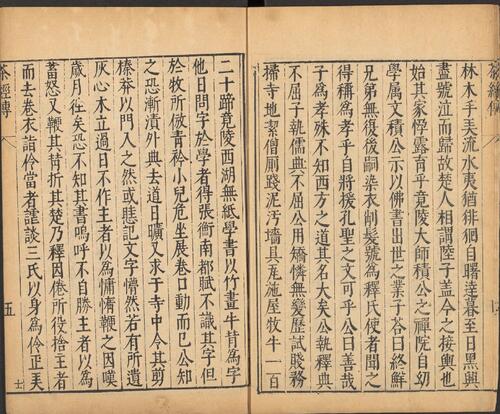 茶經傳
林木手弄流水夷猶徘徊自曙達暮至日黑興
盡號泣而歸故楚人相謂陸子蓋今之接輿也
始其家惸露育乎竟陵大師積公之禪院自幼
學屬文積公示以佛書出世之業子荅曰終鮮
兄弟無復後嗣染衣削髮號爲釋氏使者聞之
得稱爲孝乎自將援孔聖之文可乎公曰善哉
子爲孝殊不知西方之道其名大矣公執釋典
不屈子執儒典不屈公用矯憐無愛歷試賤務
掃寺地潔僧厠踐泥汚墻負瓦施屋牧牛一百
二十蹄竟陵西湖無紙學書以竹畫牛背爲字
他日問字於學者得張衡南都賦不識其字但
於牧所倣青衿小兒危坐展卷口動而已公知
之恐漸漬外典去道日曠又求于寺中令其剪
榛莽以門人之然或時記文字懵然若有所遺
灰心木立過日不作主者以爲慵惰鞭之因嘆
歲月往矣恐不知其書嗚呼不自勝主者以爲
蓄怒又鞭其背折其楚乃釋因倦所役捨主者
而去卷衣詣伶當者謔談三氏以身爲伶正弄
茶經傳
五